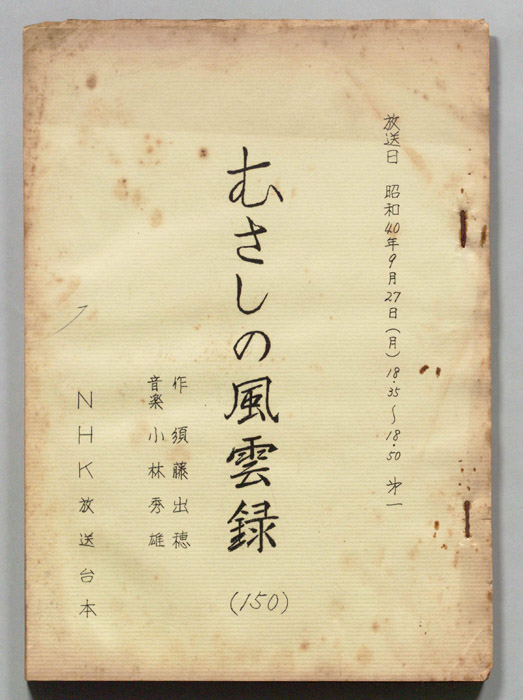 放送日 昭和40年9月27日(月)18.35〜18.50 才一
むさしの風雲録(150)
作 須藤出穂
音楽 小林秀雄
NHK放送台本